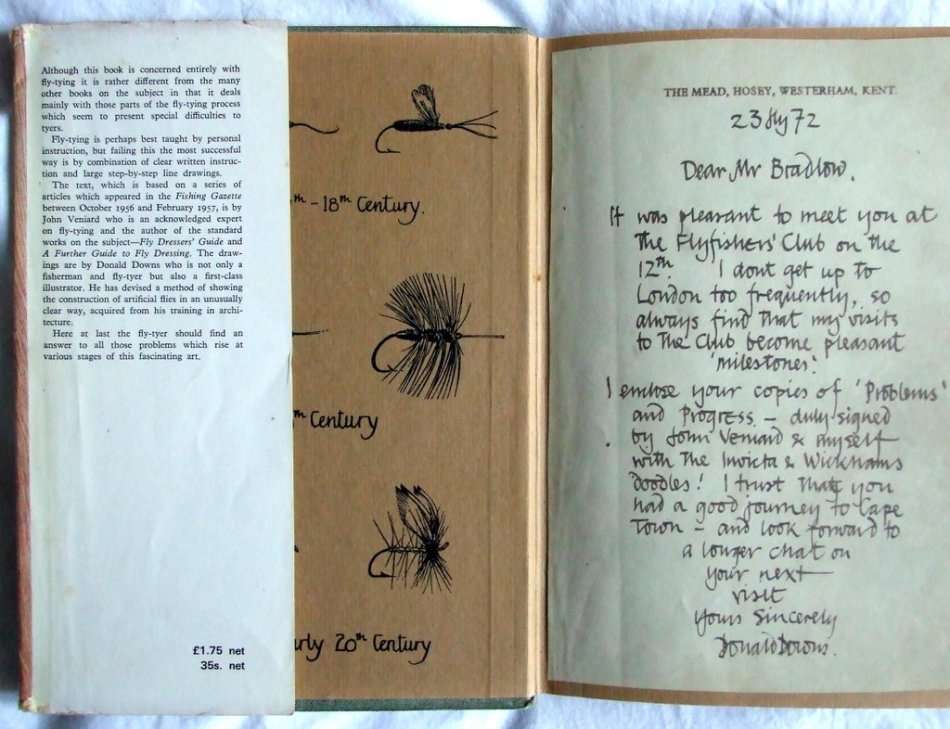 Although this book is concerned entirely with
fly-tying it is rather different from the many
other books on the subject in that it deals
mainly with those parts of the fly-tying process
which seem to present special difficulties to
tyers.
Fly-tying is perhaps best taught by personal
instruction, but failing this the most successful
way is by combination of clear written instruc-
tion and large step-by-step line drawings.
The text, which is based on a series of
articles which appeared in the Fishing Gazette
between October 1956 and February 1957, is by
John Veniard who is an acknowledged expert
on fly-tying and the author of the standard
works on the subject—Fly Dressers' Guide and
A Further Guide to Fly Dressing. The draw-
ings are by Donald Downs who is not only a
fisherman and fly-tyer but also a first-class
illustrator. He has devised a method of showing
the construction of artificial flies in an unusually
clear way, acquired from his training in archi-
tecture.
Here at last the fly-tyer should find an
answer to all those problems which rise at
various stages of this fascinating art.
£1.75 net
35s. net
th - 18th Century.
th Century
rly 20th Century
THE MEAD, HOSEY, WESTERHAM, KENT.
23 72
Dear Mr Bradlow.
It was pleasant to meet you at
the Flyfishers' Club on the
12th. I dont get up to
London too frequently, so
always find that my visits
to the Club become pleasant
'milestones'.
I enclose your copies of 'Problems'
and Progress – duly signed
by John Veniard & myself
with the Invicta & Wickhams
doodles! I trust that you
had a good journey to Cape
Town – and look forward to
a longer chat on
your next
visit
Yours Sincerely
Donald Downs.